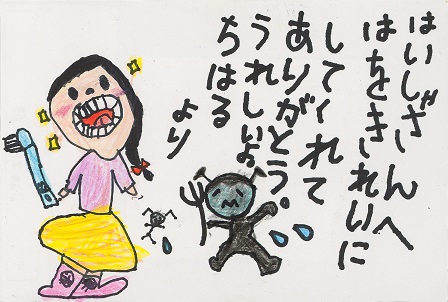 はいしゃさんへ
はをきれいに
してくれて
ありがとう。
うれしいよ
ちはる
より